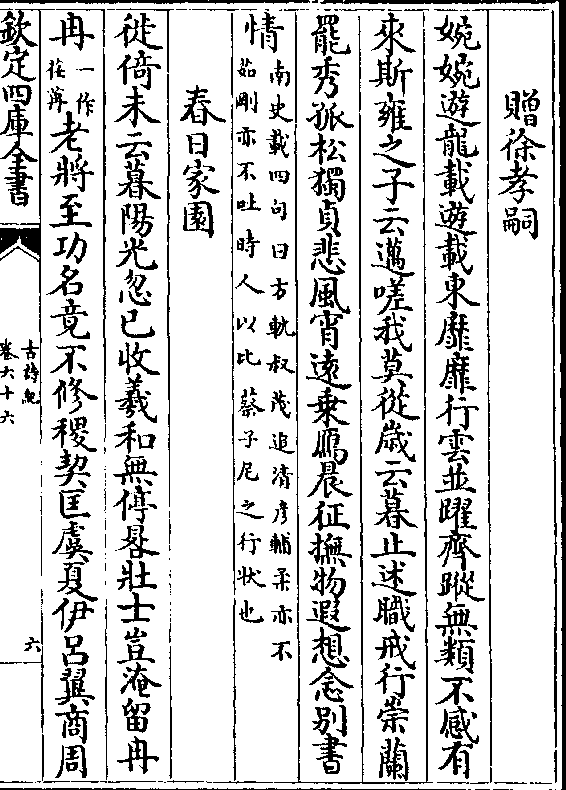 贈徐孝嗣
婉婉遊龍載遊載東靡靡行雲並躍齊蹤無類不感有
來斯雍之子云邁嗟我莫從歲云暮止述職戒行崇蘭
罷秀孤松獨貞悲風宵遠乗鴈晨征撫物遐想念别書
情南史載四句曰方軌叔茂追清彦輔柔亦不
茹剛亦不吐時人以比蔡子尼之行状也
春日家園
徙倚未云暮陽光忽已收羲和無停晷壯士豈淹留冉
冉一作荏苒老將至功名竟不修稷契匡虞夏伊吕翼商周
欽定四庫全書
古詩紀
卷六十六
六